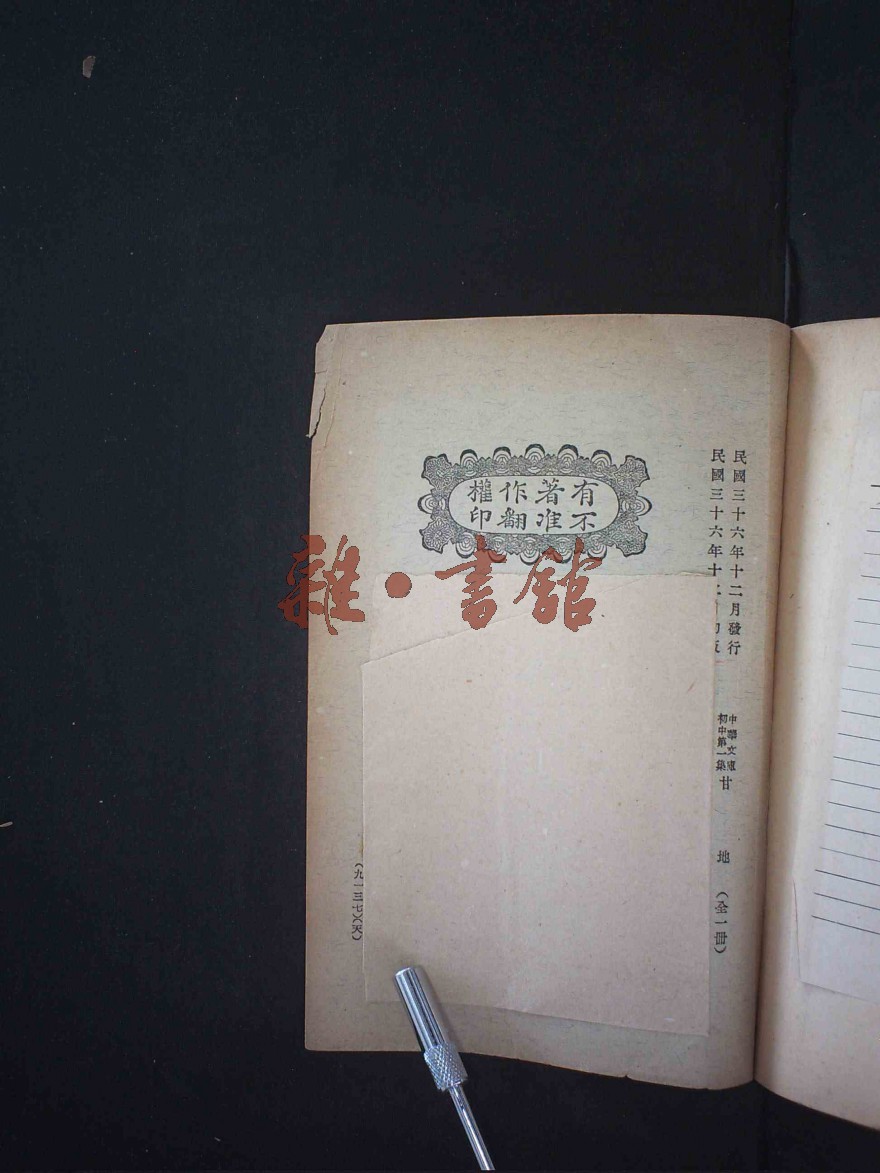 民國三十六年十二月發行
民國三十六年十二月初版
中華文庫
初中第一集
甘地
(全一冊)
有著作權
不准翻印
(九一三七)(天)
雜·書館